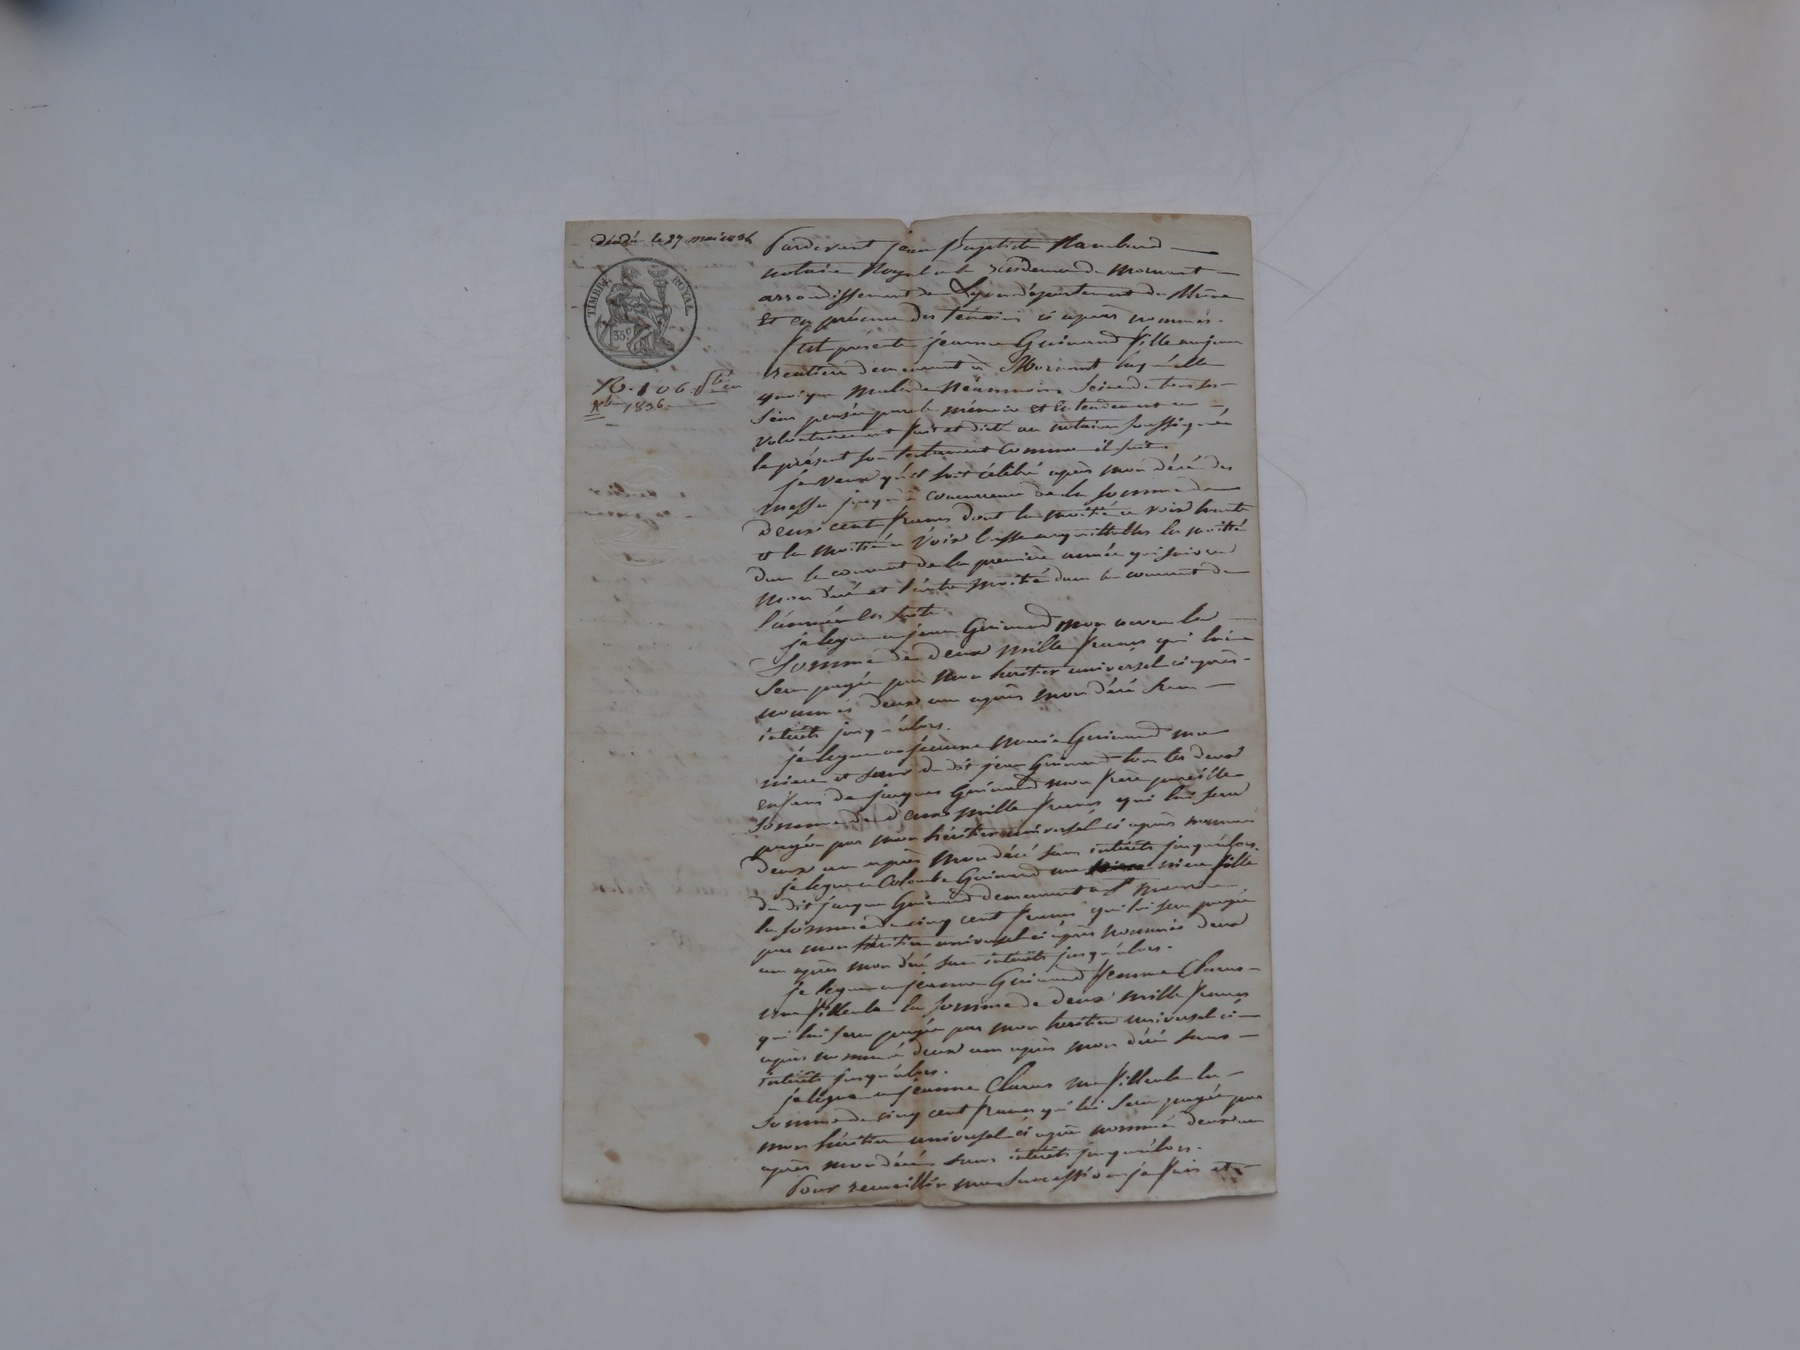 décédé le 27 mai 1836
TIMBRE ROYAL
35c
R. 106.
1836
Pardevant jean Baptiste Rambaud
notaire Royal à la résidence de Mornant
arrondissement de Lyon département du Rhône
Et en présence des témoins ci après nommés.
fut présente jeanne Guinand fille majeure
rentière demeurant à Mornant laquelle
quoique malade Néanmoins saine de tous ses
sens pensée parole mémoire et entendement a
volontairement fait et dicté au notaire soussigné
le présent son testament comme il suit.
je veux qu'il soit célébré après mon décé des
messe jusqu'à concurrence de la somme de
deux cent francs dont la moitié à voix haute
et la moitié à voix basse acquittables la moitié
dans le courant de la première année qui suivra
mon décé et l'autre moitié dans le courant de
l'année en suite.
je legue a jean Guinand mon neveu la
somme de deux mille francs qui lui
sera payée par mon héritier universel ci après
nommé deux ans après mon décé sans
intérêts jusqu'alors.
je legue a jeanne Marie Guinand ma
niece et sœur du dit jean Guinand tous les deux
enfans de jacques Guinand mon frere pareille
somme de deux mille francs qui lui sera
payée par mon héritier universel ci après nommé
deux ans après mon décé sans intérêts jusqu'alors.
je legue a Colombe Guinand ma niece fille
du dit jacques Guinand demeurant a St
la somme de cinq cent francs qui lui sera payée
par mon héritier universel ci après nommé deux
ans après mon décé sans intérêts jusqu'alors.
je legue a jeanne Guinand femme Claras
ma filleule la somme de deux mille francs
qui lui sera payée par mon héritier universel ci
après nommé deux ans après mon décé sans
intérêts jusqu'alors.
je legue a jeanne Claras ma filleule la
somme de cinq cent francs qui lui sera payée par
mon héritier universel ci après nommé deux ans
après mon décé sans intérêts jusqu'alors.
Pour recueillir ma succession je fais et